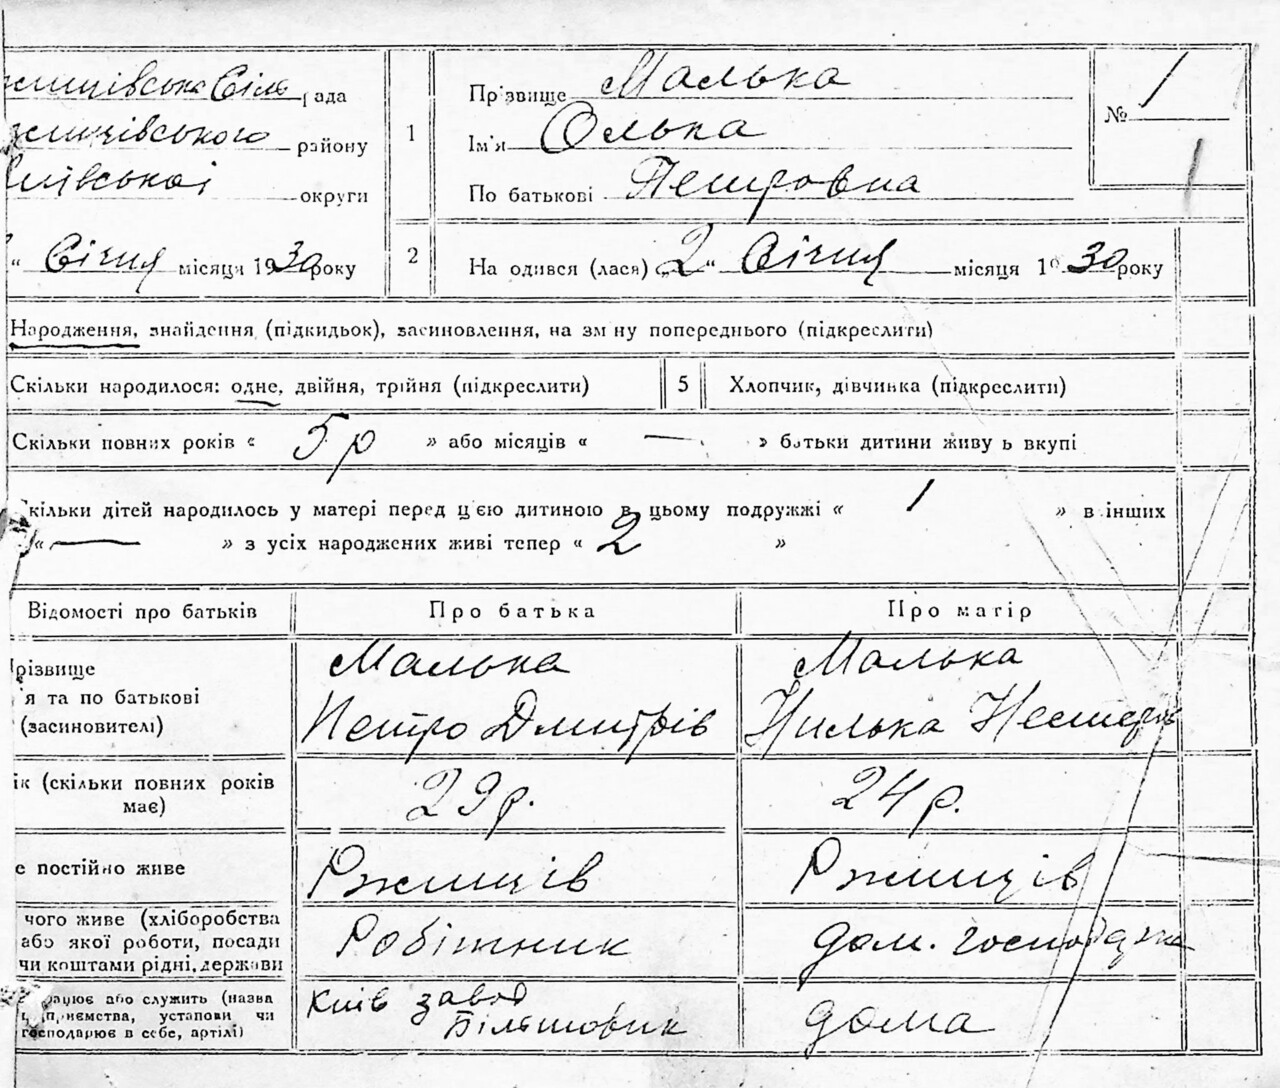 Сіль рада
району
округи
1
Прізвище Малька
Ім'я Олька
По батькові Петровна
№ 1
1
" Січня місяця 1930 року
2
На одився (лася) „2" Січня місяця 1930 року
Народження, знайдення (підкидьок), засиновлення, на зміну попереднього (підкреслити)
Скільки народилося: одне, двійня, трійня (підкреслити)
5
Хлопчик, дівчинка (підкреслити)
Скільки повних років « 5 р » або місяців « — » батьки дитини живу ь вкупі
кільки дітей народилось у матері перед цією дитиною в цьому подружжі « 1 » в інших
« — » з усіх народжених живі тепер « 2 »
Відомості про батьків
Про батька
Про матір
різвище
я та по батькові
(засиновителі)
Малька
Петро Дмитрів
Малька
Нестерів
ік (скільки повних років
має)
29 р.
24 р.
е постійно живе
Ржищів
Ржищів
чого живе (хліборобства
або якої роботи, посади
чи коштами рідні, держави
Робітник
дом. господарка
рацює або служить (назва
ідприємства, установи чи
господарює в себе, артілі)
Київ завод
Більшовик
дома